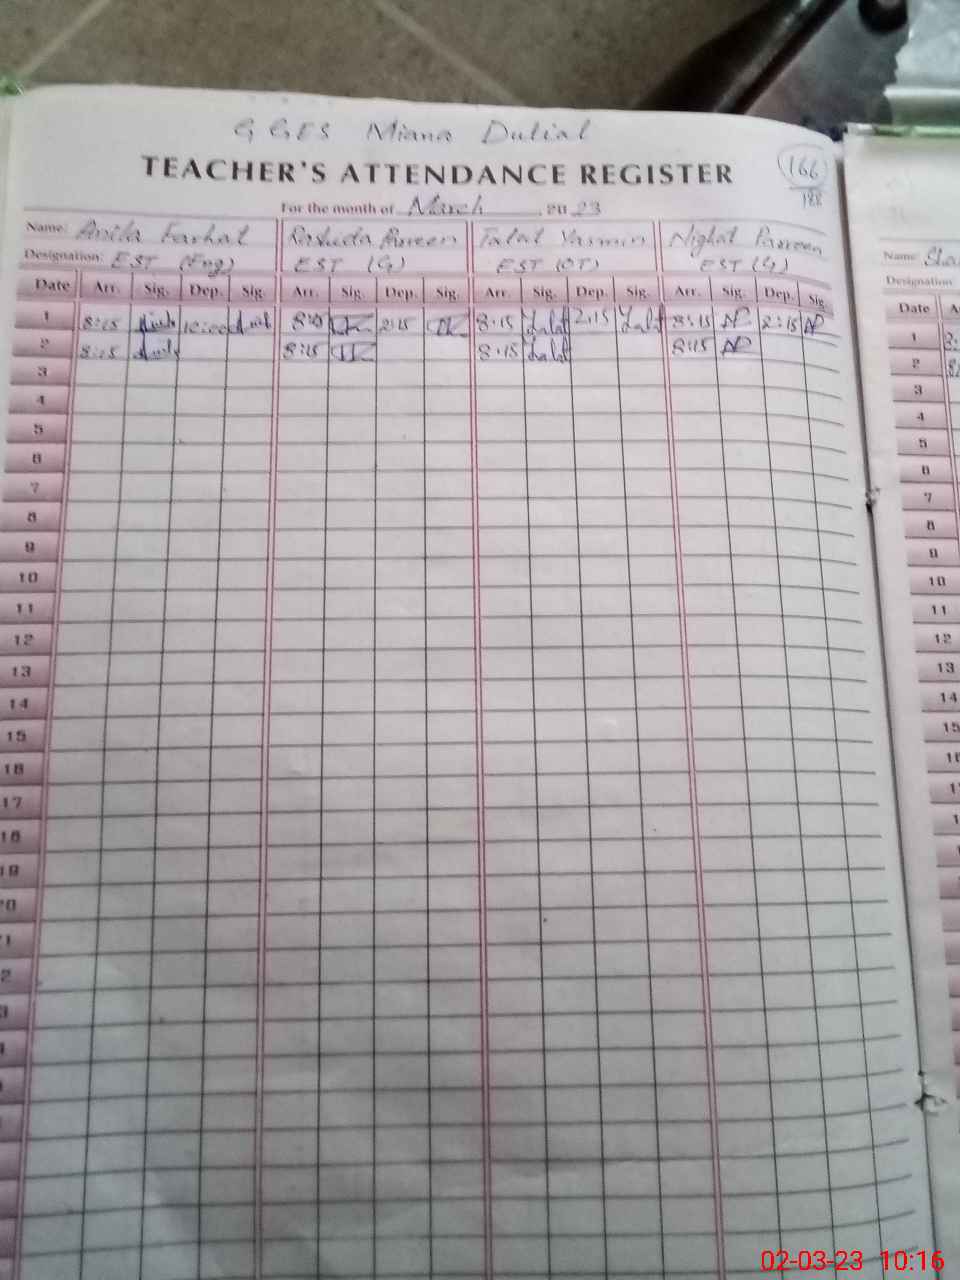 G GES Miana Dulial
TEACHER'S ATTENDANCE REGISTER
166
188
For the month of March 2023
Name: Anila Farhat Rashida Parveen Talat Yasmin Nighat Parveen
Designation: EST (Eng) EST (G) EST (OT) EST (G)
Date Arr. Sig. Dep. Sig. Arr. Sig. Dep. Sig. Arr. Sig. Dep. Sig. Arr. Sig. Dep. Sig.
1 8:15 10:00 8:15 2:15 8:15 Talat 2:15 Talat 8:15 NP 2:15 NP
2 8:15 8:15 8:15 Talat 8:15 NP
3
4
5
6
7
8
9
10
11
12
13
14
15
16
17
18
19
20
Name:
Designation
Date
1
2
3
4
5
6
7
8
9
10
11
12
13
14
15
02-03-23 10:16